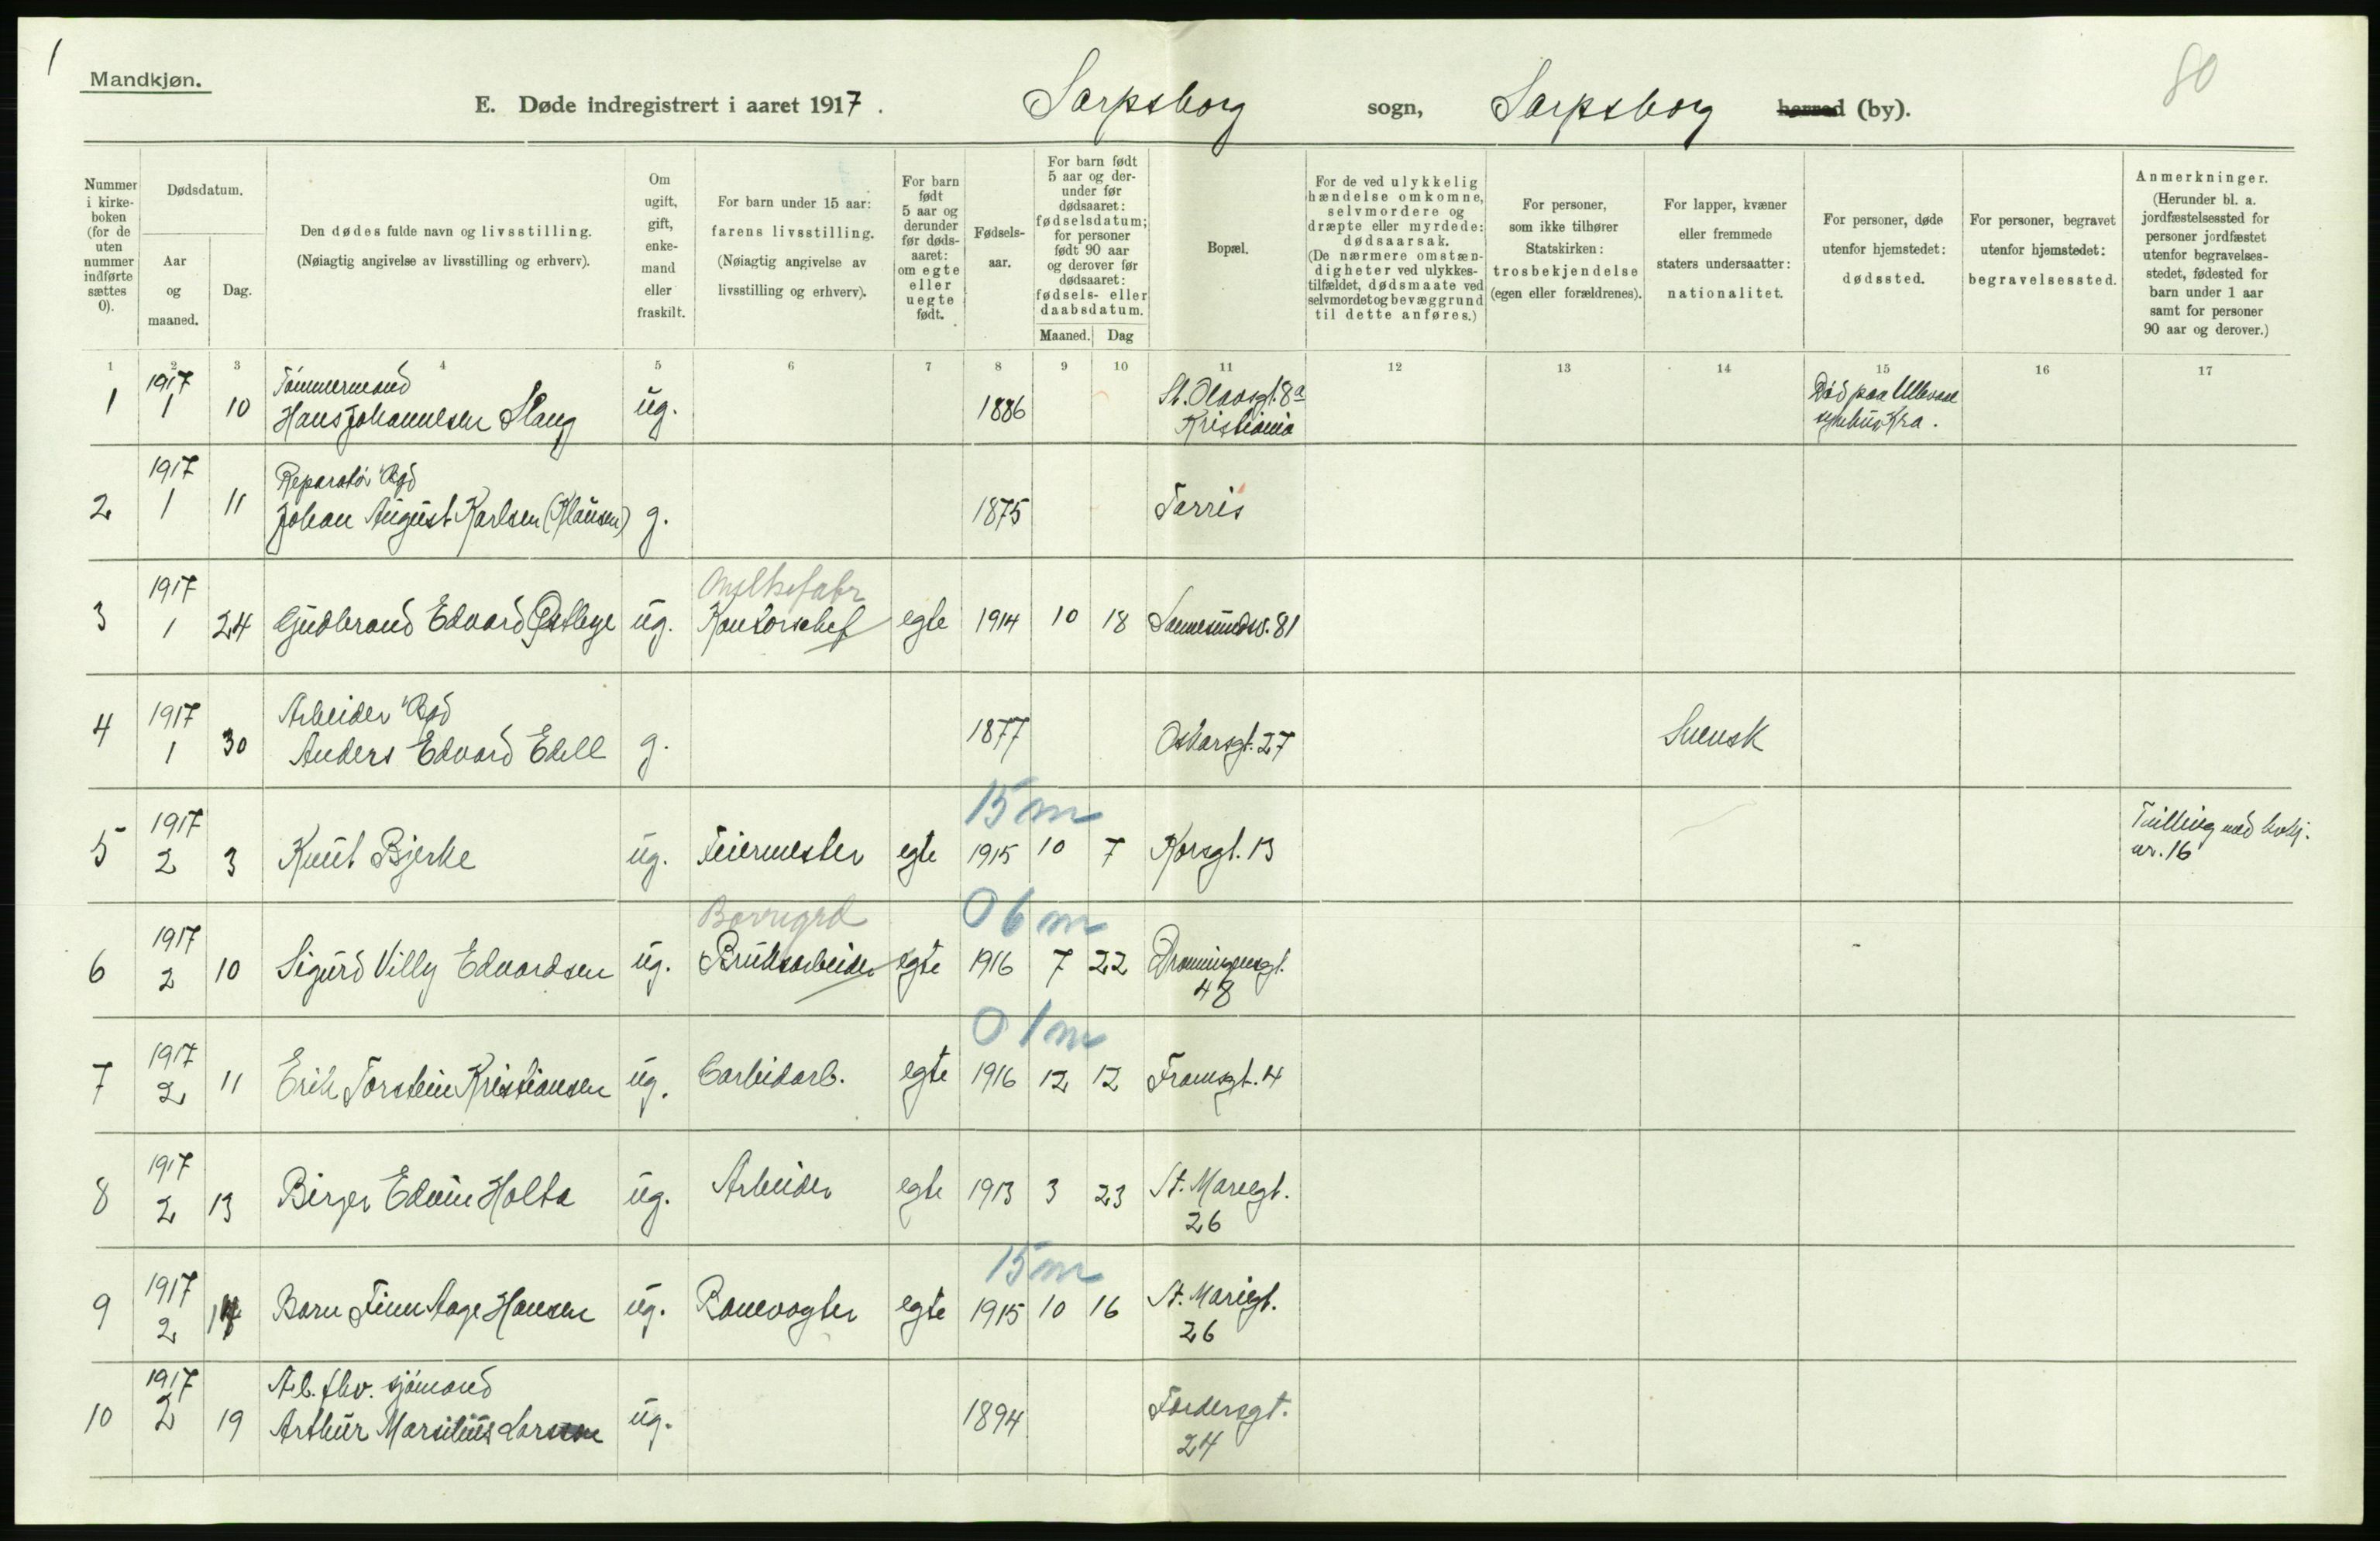 1
Mandkjøn.
80
E. Døde indregistrert i aaret 1917.
Sarpsborg sogn, Sarpsborg herred (by).
Nummer i kirke-boken (for de uten nummer indførte sættes 0).
Dødsdatum.
Aar og maaned.
Dag.
Den dødes fulde navn og livsstilling.
(Nøiagtig angivelse av livsstilling og erhverv).
Om ugift, gift, enke-mand eller fraskilt.
For barn under 15 aar: farens livsstilling.
(Nøiagtig angivelse av livsstilling og erhverv).
For barn født 5 aar og derunder før døds-aaret: om egte eller uegte født.
Fødsels-aar.
For barn født 5 aar og der-under før dødsaaret: fødselsdatum; for personer født 90 aar og derover før dødsaaret: fødsels- eller daabsdatum.
Maaned. Dag
Bopæl.
For de ved ulykkelig hændelse omkomne, selvmordere og dræpte eller myrdede: dødsaarsak.
(De nærmere omstæn-digheter ved ulykkes-tilfældet, dødsmaate ved selvmordet og bevæggrund til dette anføres.)
For personer, som ikke tilhører Statskirken: trosbekjendelse (egen eller forældrenes).
For lapper, kvæner eller fremmede staters undersaatter: nationalitet.
For personer, døde utenfor hjemstedet: dødssted.
For personer, begravet utenfor hjemstedet: begravelsessted.
Anmerkninger.
(Herunder bl. a. jordfæstelsessted for personer jordfæstet utenfor begravelses-stedet, fødested for barn under 1 aar samt for personer 90 aar og derover.)
1 2 3 4 5 6 7 8 9 10 11 12 13 14 15 16 17
1917 Tømmermand St. Olavsgt. 8a Død paa Ullevaal
1 1 10 Hans Johannesen Haug ug. 1886 Kristiania sykehus Kra.
1917 Reparatør
2 1 11 Johan August Karlsen (Klausen) g. 1875 Tarris
1917
3 1 24 Gudbrand Edvard Østbye ug. Kontorschef egte 1914 10 18 Sannesundsv. 81
1917 Arbeider
4 1 30 Anders Edvard Edell g. 1877 Oskarsgt. 27 Svensk
1917 15 m Tvilling med kvkj.
5 2 3 Knut Bjerke ug. Feiermester egte 1915 10 7 Korsgt. 13 nr. 16
1917 Borregrd 0 6 m
6 2 10 Sigurd Villy Edvardsen ug. Bruksarbeider egte 1916 7 22 Dronningensgt.
48
1917 0 1 m
7 2 11 Erik Torstein Kristiansen ug. Carbidarb. egte 1916 12 12 Framsgt. 4
1917
8 2 13 Birger Edvin Holta ug. Arbeider egte 1913 3 23 St. Mariegt.
26
1917 15 m
9 2 14 Barn Finn Aage Hansen ug. Banevogter egte 1915 10 16 St. Mariegt.
26
1917 Arb. fhv. sjømand
10 2 19 Arthur Marsilius Larsen ug. 1894 Tordersgt.
24